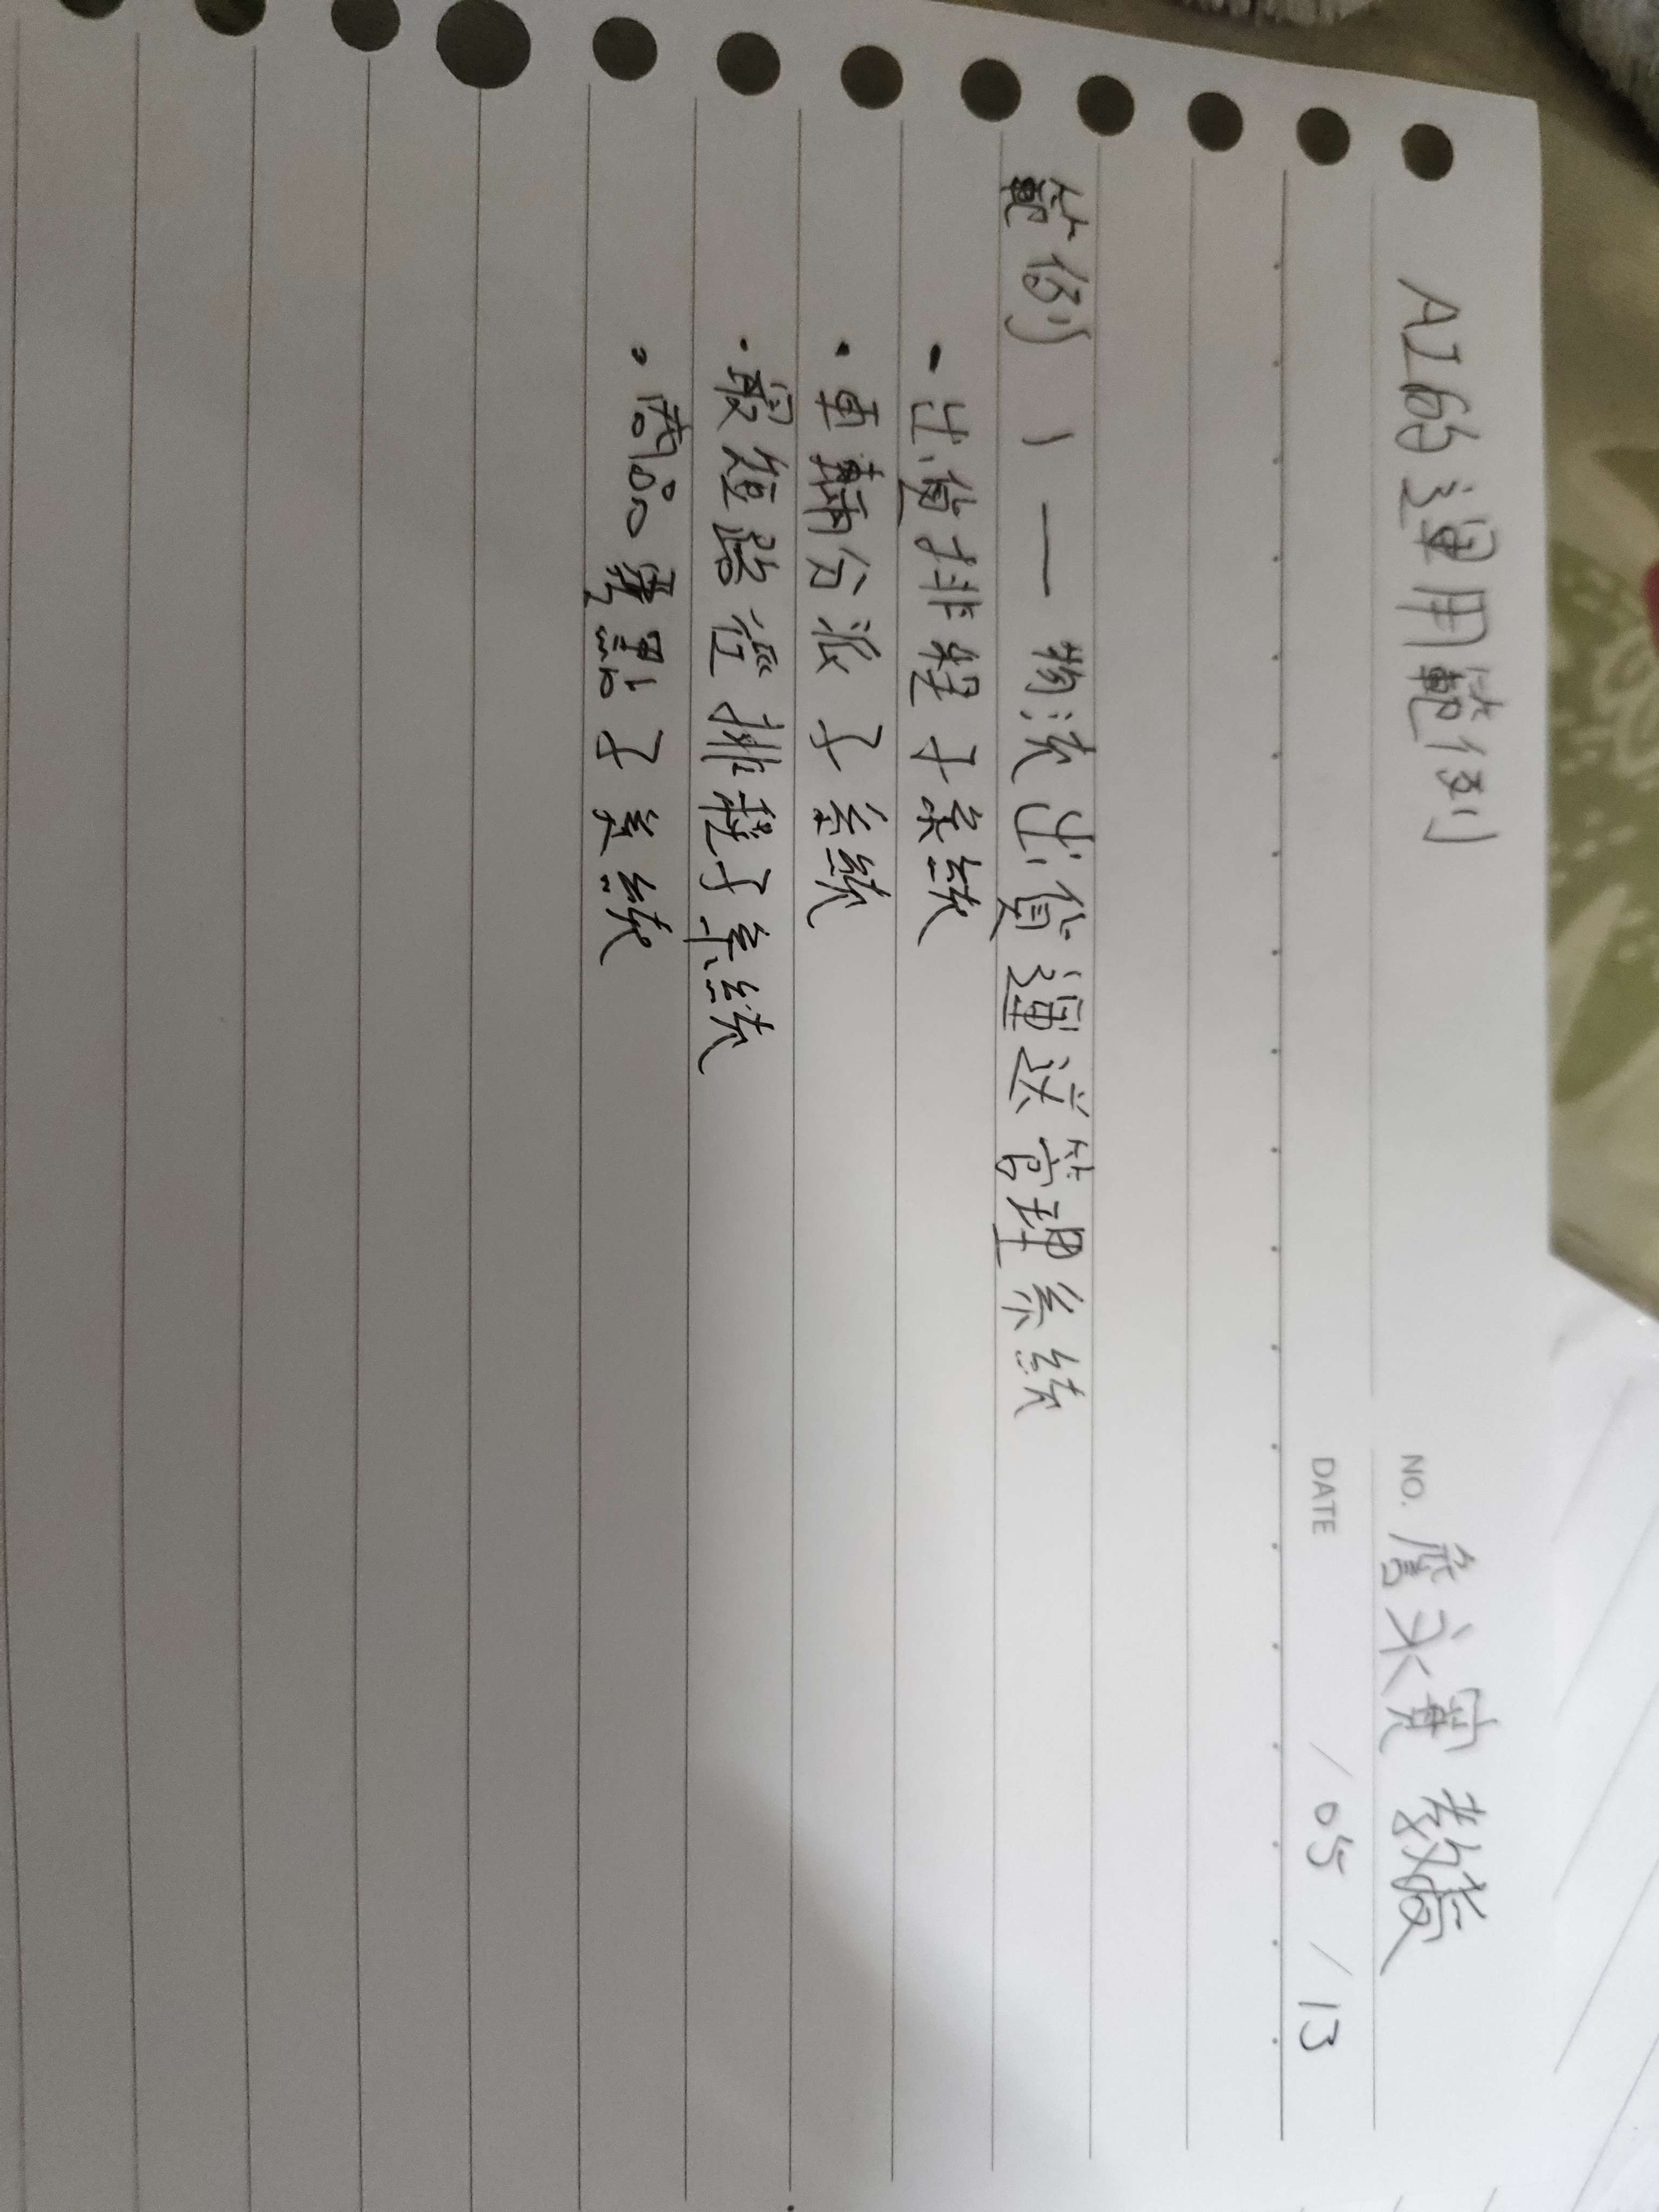 AI的運用範例
NO. 詹永寬 教授
DATE / 05 / 13
範例 1 — 物流出貨運送管理系統
- 出貨排程子系統
· 車輛分派子系統
· 最短路徑排程子系統
· 商品 點子系統